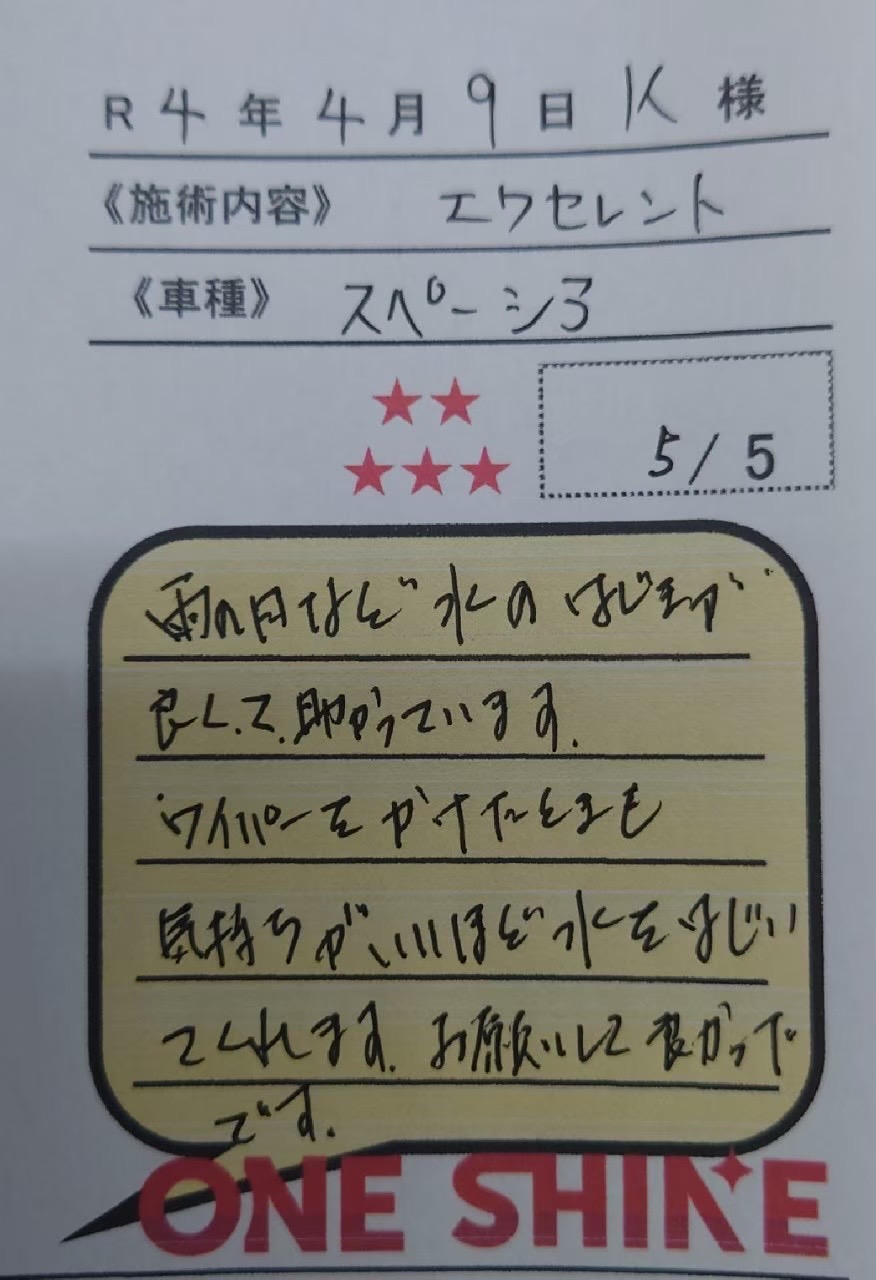 R 4 年 4 月 9 日 K 様
《施術内容》 エクセレント
《車種》 スペーシア
5/5
雨の日など水のはじきが
良くて助かっています.
ワイパーをかけたときも
気持ちがいいほど水をはじい
てくれます. お願いして良かった
です.
ONE SHINE